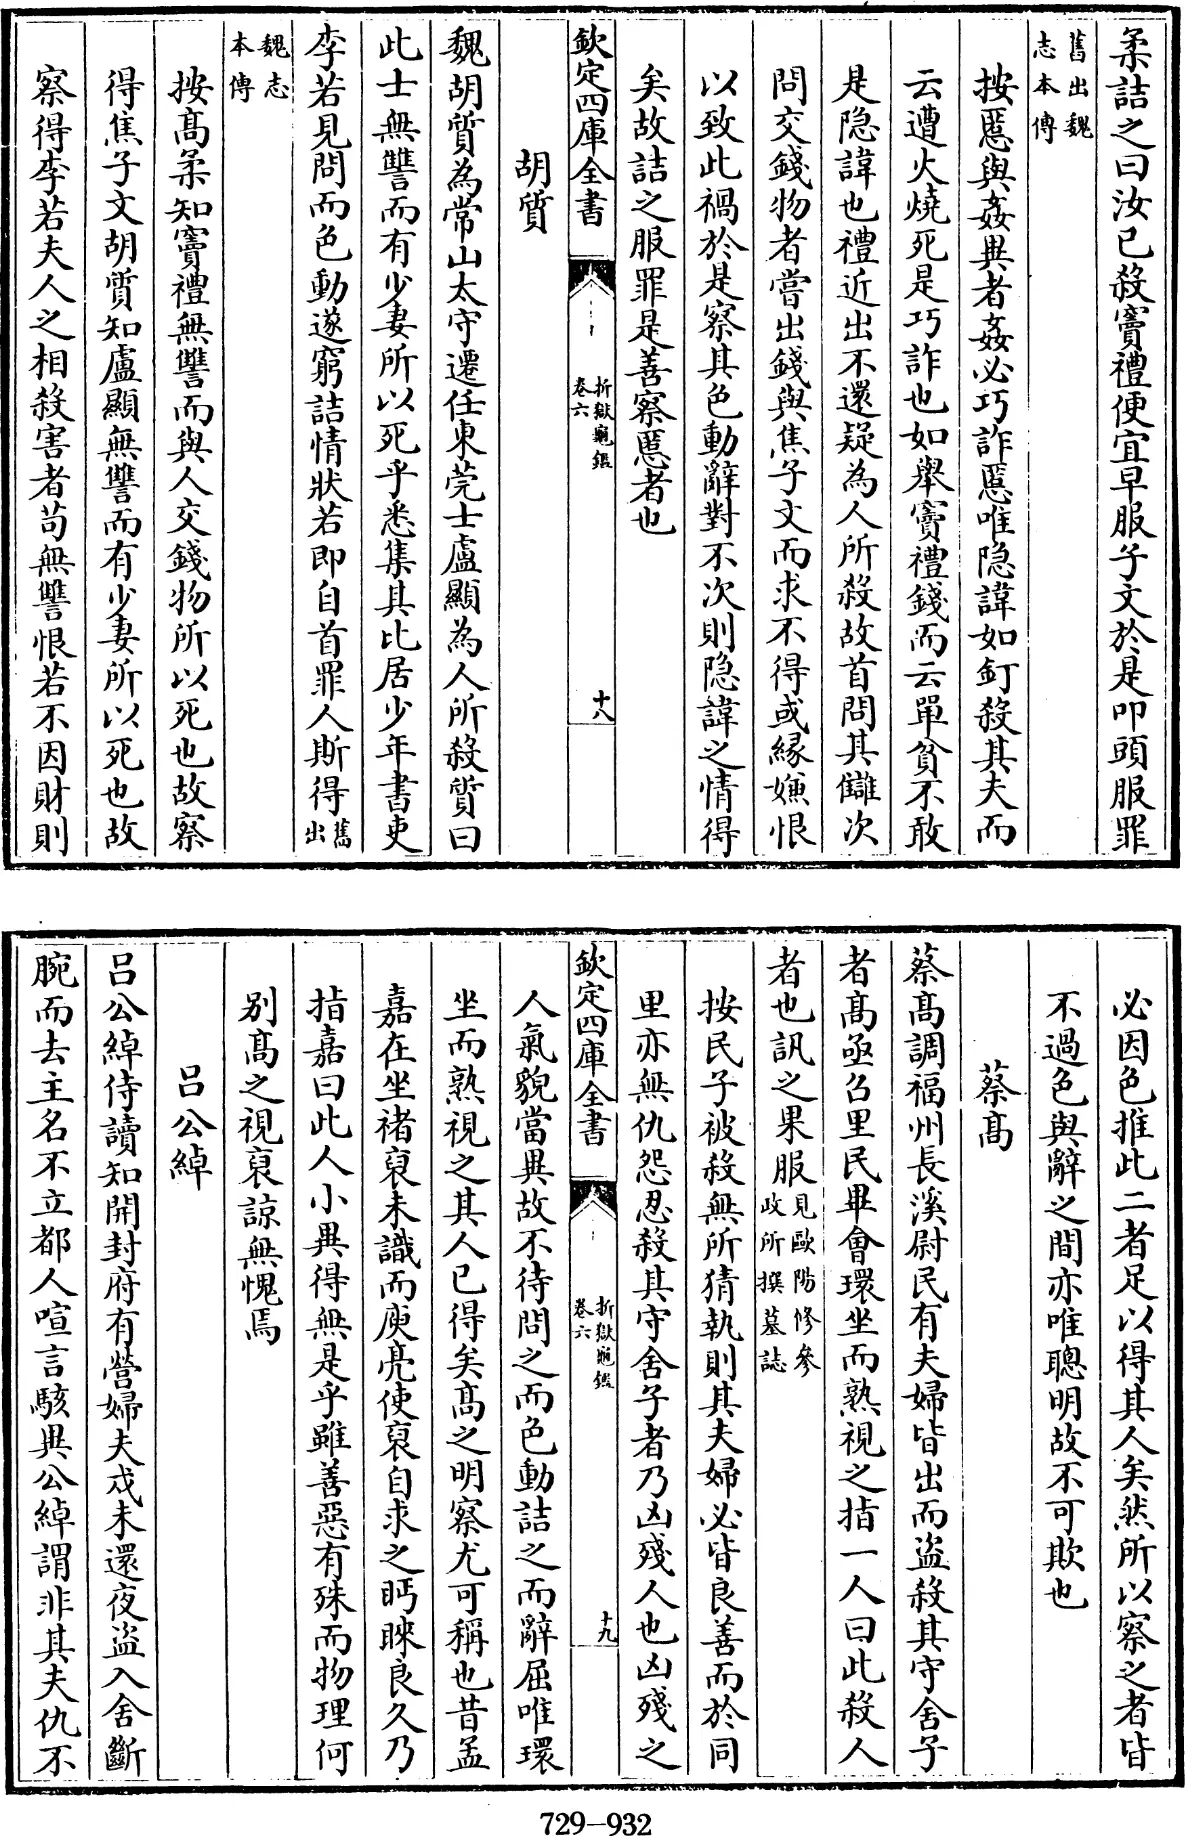 柔詰之曰汝已殺竇禮便宜早服子文於是叩頭服罪
舊出魏
志本傳
按慝與姦異者姦必巧詐慝唯隠諱如釘殺其夫而
云遭火燒死是巧詐也如舉竇禮錢而云單貧不敢
是隠諱也禮近出不還疑為人所殺故首問其讎次
問交錢物者嘗出錢與焦子文而求不得或縁嫌恨
以致此禍於是察其色動辭對不次則隠諱之情得
矣故詰之服罪是善察慝者也
欽定四庫全書
折獄龜鑑
卷六
十八
胡質
魏胡質為常山太守遷任東莞士盧顯為人所殺質曰
此士無讐而有少妻所以死乎悉集其比居少年書吏
李若見問而色動遂窮詰情狀若即自首罪人斯得舊
出
魏志
本傳
按髙柔知竇禮無讐而與人交錢物所以死也故察
得焦子文胡質知盧顯無讐而有少妻所以死也故
察得李若夫人之相殺害者茍無讐恨若不因財則
必因色推此二者足以得其人矣然所以察之者皆
不過色與辭之間亦唯聰明故不可欺也
蔡髙
蔡髙調福州長溪尉民有夫婦皆出而盜殺其守舍子
者髙亟召里民畢會環坐而熟視之指一人曰此殺人
者也訊之果服見歐陽修參
政所撰墓誌
按民子被殺無所猜執則其夫婦必皆良善而於同
里亦無仇怨忍殺其守舍子者乃凶殘人也凶殘之
欽定四庫全書
折獄龜鑑
卷六
十九
人氣貌當異故不待問之而色動詰之而辭屈唯環
坐而熟視之其人已得矣髙之明察尤可稱也昔孟
嘉在坐禇裒未識而庾亮使裒自求之眄睞良久乃
指嘉曰此人小異得無是乎雖善惡有殊而物理何
别髙之視裒諒無愧焉
呂公綽
呂公綽侍讀知開封府有營婦夫戍未還夜盜入舍斷
腕而去主名不立都人喧言駭異公綽謂非其夫仇不
729-932